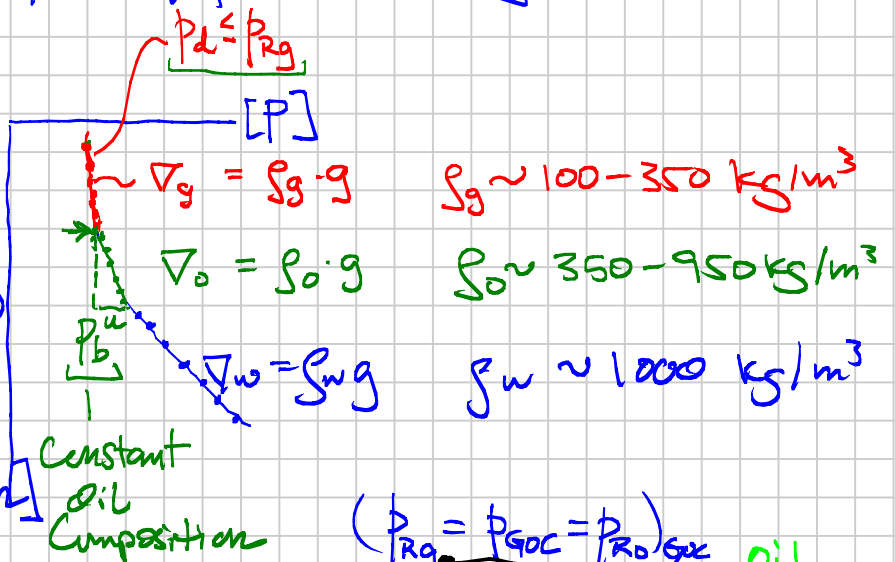 p_d ≤ p_Rg
[P]
∇_g = ρ_g · g ρ_g ~ 100 - 350 kg/m³
∇_o = ρ_o · g ρ_o ~ 350 - 950 kg/m³
∇_w = ρ_w g ρ_w ~ 1000 kg/m³
p_b
Constant
Oil
Composition
(p_Rg = p_GOC = p_Ro)_GOC
oil